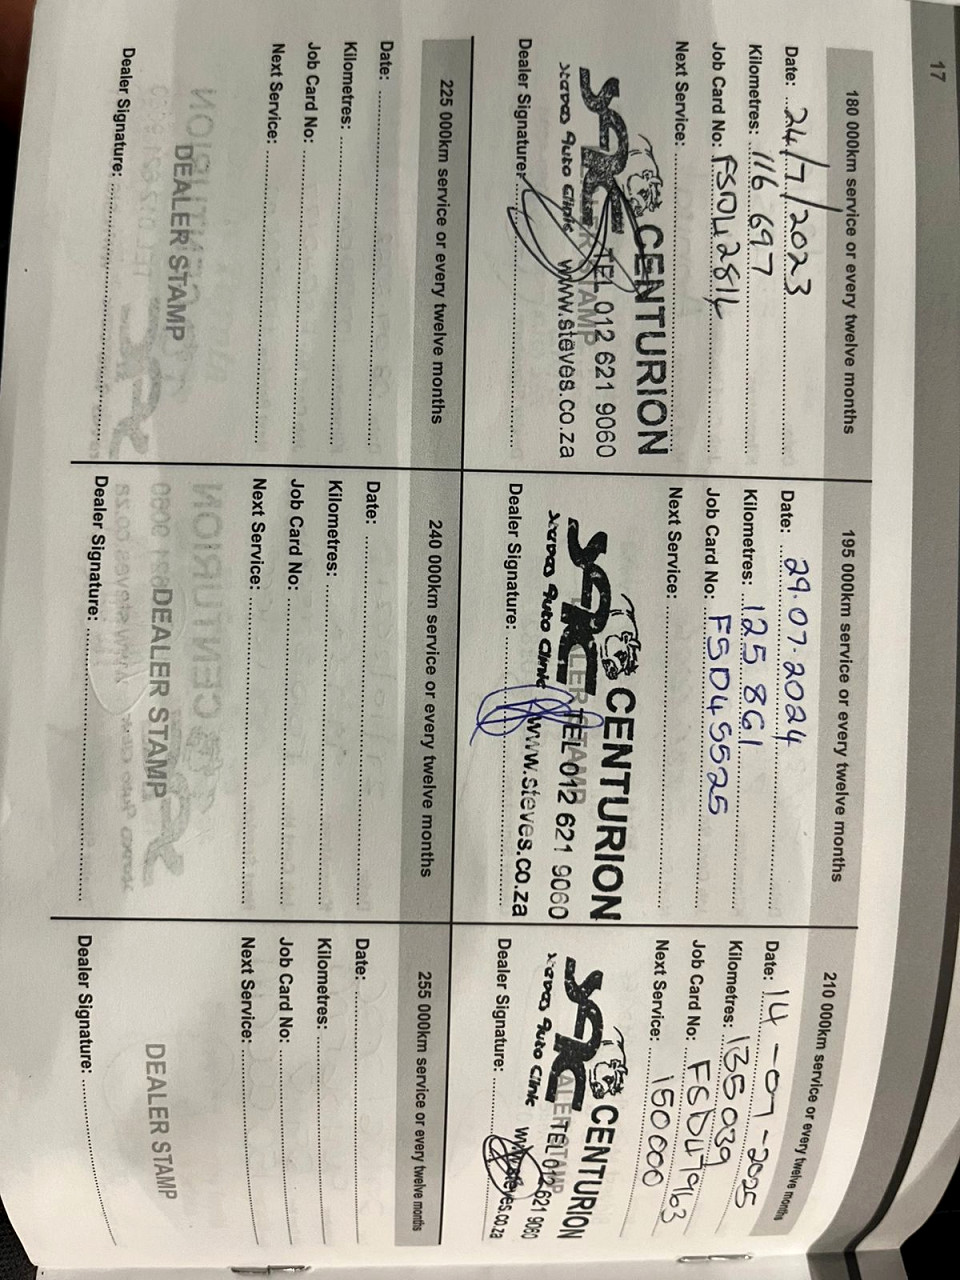 17
180 000km service or every twelve months
Date: 24/7/2023
Kilometres: 116 697
Job Card No: FSD42814
Next Service:
CENTURION
SAC
TEL 012 621 9060
steves auto clinic www.steves.co.za
DEALER STAMP
Dealer Signature:
195 000km service or every twelve months
Date: 29.07.2024
Kilometres: 125 861
Job Card No: FSD45525
Next Service:
CENTURION
SAC
TEL 012 621 9060
steves auto clinic www.steves.co.za
DEALER STAMP
Dealer Signature:
210 000km service or every twelve months
Date: 14-07-2025
Kilometres: 135 039
Job Card No: FSD47963
Next Service: 150 000
CENTURION
SAC
TEL 012 621 9060
steves auto clinic www.steves.co.za
DEALER STAMP
Dealer Signature:
225 000km service or every twelve months
Date:
Kilometres:
Job Card No:
Next Service:
DEALER STAMP
Dealer Signature:
240 000km service or every twelve months
Date:
Kilometres:
Job Card No:
Next Service:
DEALER STAMP
Dealer Signature:
255 000km service or every twelve months
Date:
Kilometres:
Job Card No:
Next Service:
DEALER STAMP
Dealer Signature: